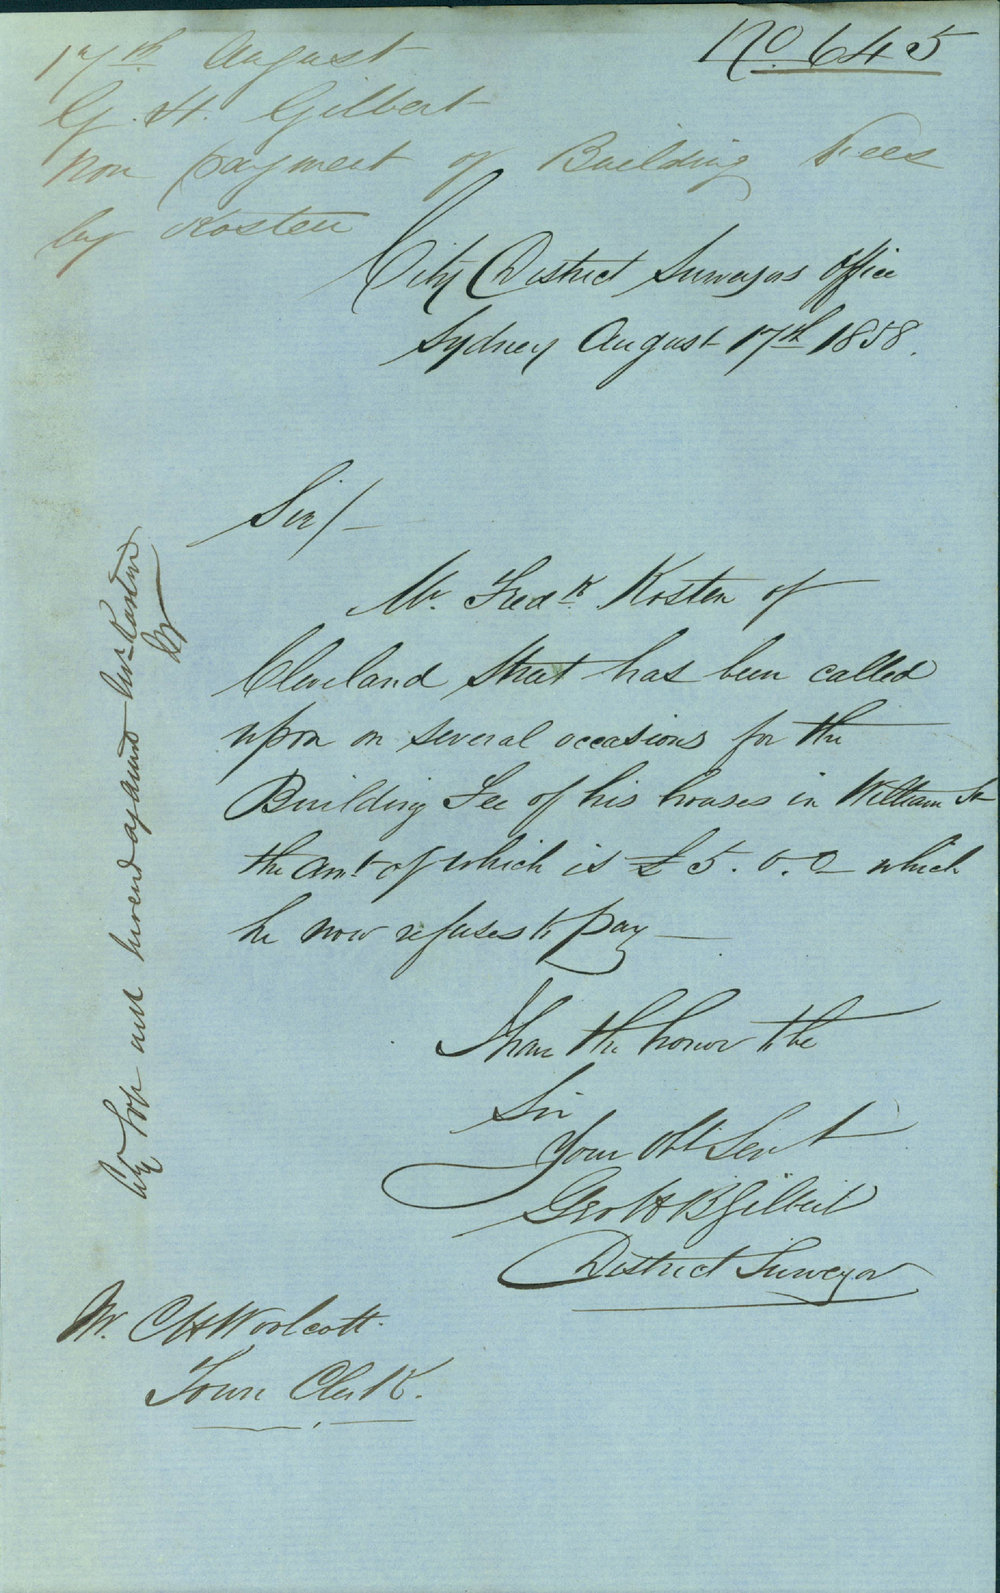 No. 645
17th August
G. H. Gilbert
Non payment of Building Fees
by Kosten
City District Surveyors Office
Sydney August 17th 1858.
Sir/-
Mr. Fredk. Kosten of
Cleveland Street has been called
upon on several occasions for the
Building Fee of his houses in William St
the amt of which is £5.0.0 which
he now refuses to pay—
I have the honor to be
Sir
Your Obt Servt
Geo H B Gilbert
District Surveyor
Mr. C H Woolcott.
Town Clerk.
against Mr. Kosten